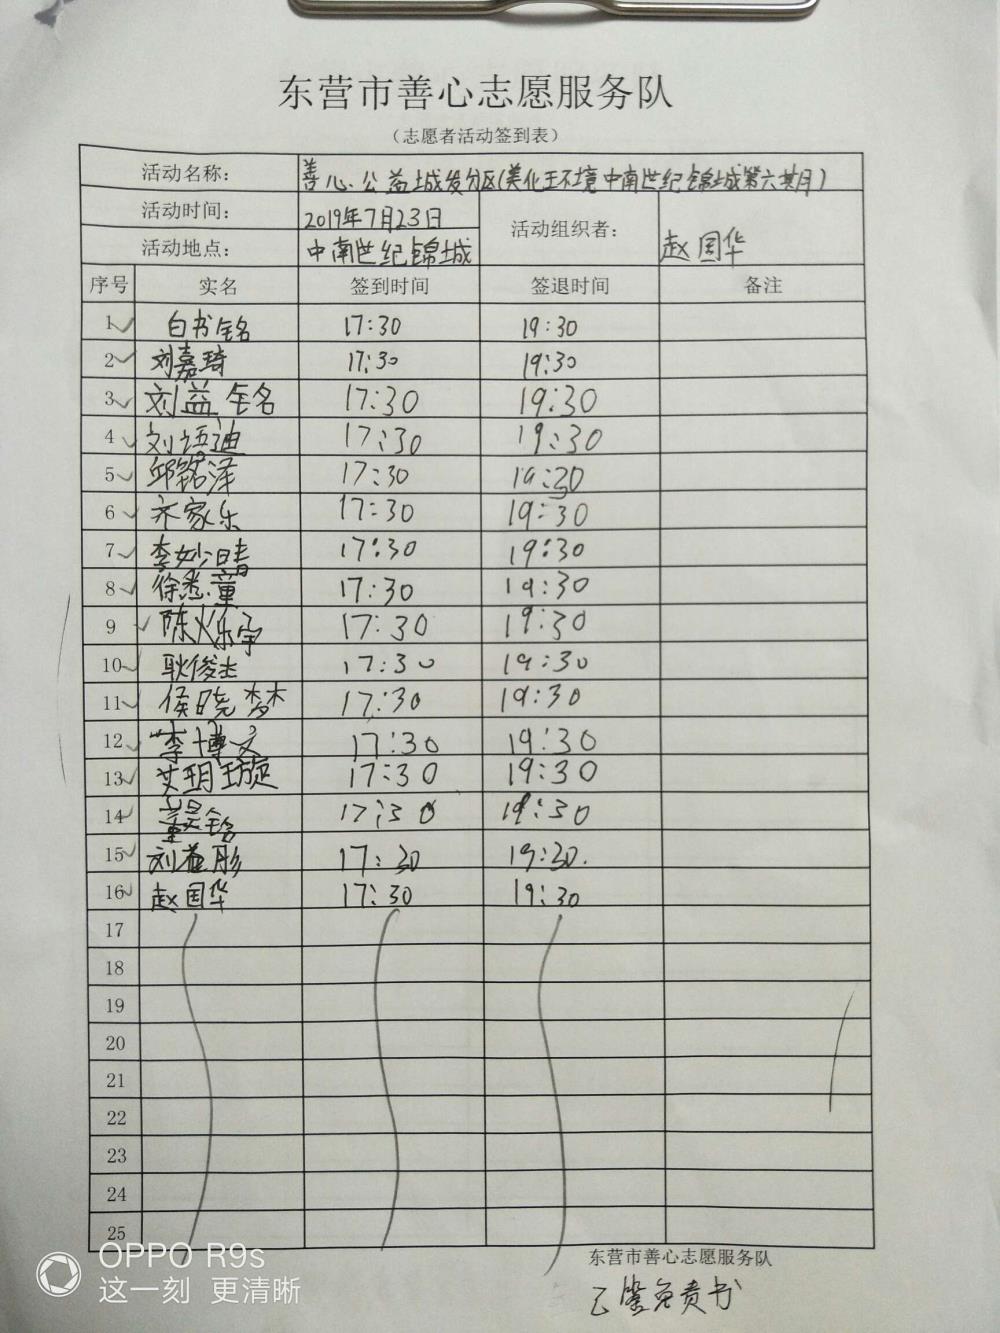 东营市善心志愿服务队
（志愿者活动签到表）
活动名称： 善心公益城发分区(美化环境中南世纪锦城第六期)
活动时间： 2019年7月23日 活动组织者： 赵国华
活动地点： 中南世纪锦城
序号 实名 签到时间 签退时间 备注
1 白书铭 17:30 19:30
2 刘嘉琦 17:30 19:30
3 刘益铭 17:30 19:30
4 刘语迪 17:30 19:30
5 邱铭泽 17:30 19:30
6 齐家乐 17:30 19:30
7 李妙晴 17:30 19:30
8 徐悉童 17:30 19:30
9 陈烁宇 17:30 19:30
10 耿俊杰 17:30 19:30
11 侯晓梦 17:30 19:30
12 李博文 17:30 19:30
13 艾玥璇 17:30 19:30
14 董昊铭 17:30 19:30
15 刘益彤 17:30 19:30.
16 赵国华 17:30 19:30
17
18
19
20
21
22
23
24
25
东营市善心志愿服务队
已签免责书
OPPO R9s
这一刻 更清晰